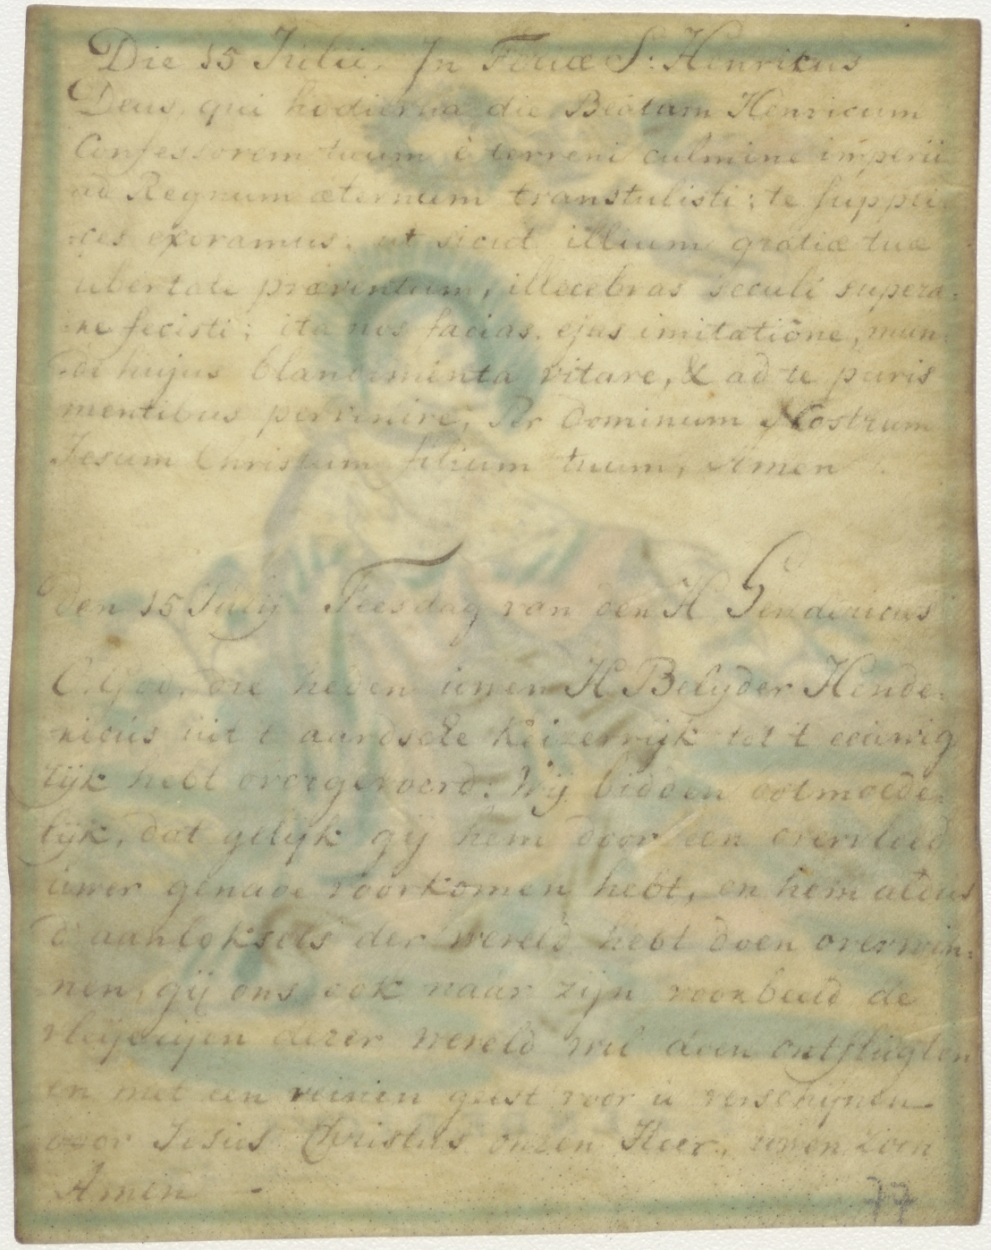 Die 15 Julii. In Festo S: Henricus
Deus, qui hodierna die Beatum Henricum
Confessorem tuum è terreni culmine imperii
ad Regnum æternum transtulisti; te suppli:
ces exoramus, ut sicut illum gratiæ tuæ
ubertate præventum, illecebras seculi supera:
re fecisti; ita nos facias, ejus imitatione, mun:
di hujus blandimenta vitare, & ad te puris
mentibus pervenire, Per Dominum Nostrum
Jesum Christum filium tuum, Amen.
Den 15 Julij Feesdag van den H Hendericus
O. God, die heden uwen H Belyder Hende:
ricus uit t aardsche Keizerrijk tot t eeuwig
lijk hebt overgevoerd. Wij bidden ootmoede:
lijk, dat gelijk gij hem door een overvloed
uwer genade voorkomen hebt, en hem aldus
d' aanloksels der wereld hebt doen overwin:
nen, gij ons ook naar zijn voorbeeld de
vleijerijen dezer wereld wil doen ontvlugten
en met een reinen geest voor u verschijnen
door Jesus Christus onzen Heer, uwen Zoon
Amen
77